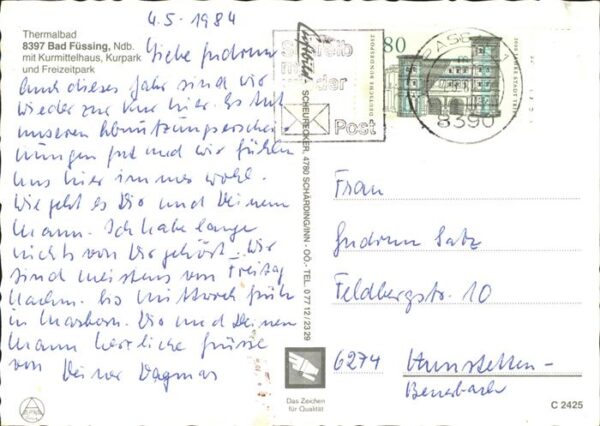 4.5-1984
Thermalbad
8397 Bad Füssing, Ndb.
mit Kurmittelhaus, Kurpark
und Freizeitpark
Liebe Gudrun
Auch dieses Jahr sind wir
wieder zur Kur hier. Es tut
unseren Abnützungserschei
nungen gut und wir fühlen
uns hier immer wohl.
Wie geht es Dir und Deinem
Mann. Ich habe lange
nichts von Dir gehört. Wir
sind meistens von Freitag
Nachm. bis Mittwoch früh
in Marbern. Dir und Deinem
Mann herrliche Grüsse
von Deiner Dagmar
Schreib
mal wieder
Post
80
DEUTSCHE BUNDESPOST
PASSAU 1
8390
SCHEURECKER, 4780 SCHÄRDING/INN - OÖ. - TEL. 0 77 12 / 23 29
Frau
Gudrun Satz
Feldbergstr. 10
6274 Hünstetten-
Beuerbach
Das Zeichen
für Qualität
C 2425